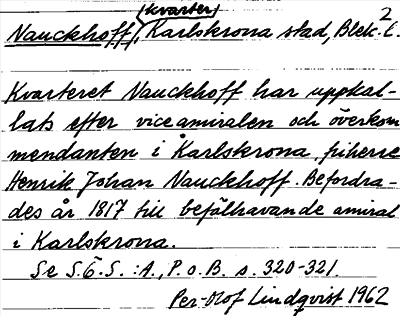 (kvarter) 2
Nauckhoff, Karlskrona stad, Blek. l.
Kvarteret Nauckhoff har uppkal-
lats efter viceamiralen och överkom
mendanten i Karlskrona, friherre
Henrik Johan Nauckhoff. Befordra-
des år 1817 till befälhavande amiral
i Karlskrona.
Se S.Ö.S. :A., P.o.B. s. 320-321.
Per-Olof Lindqvist 1962